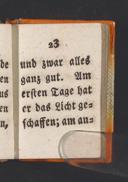 23
de und zwar alles
en ganz gut. Am
us ersten Tage hat
en er das Licht ge-
n, schaffen; am an-